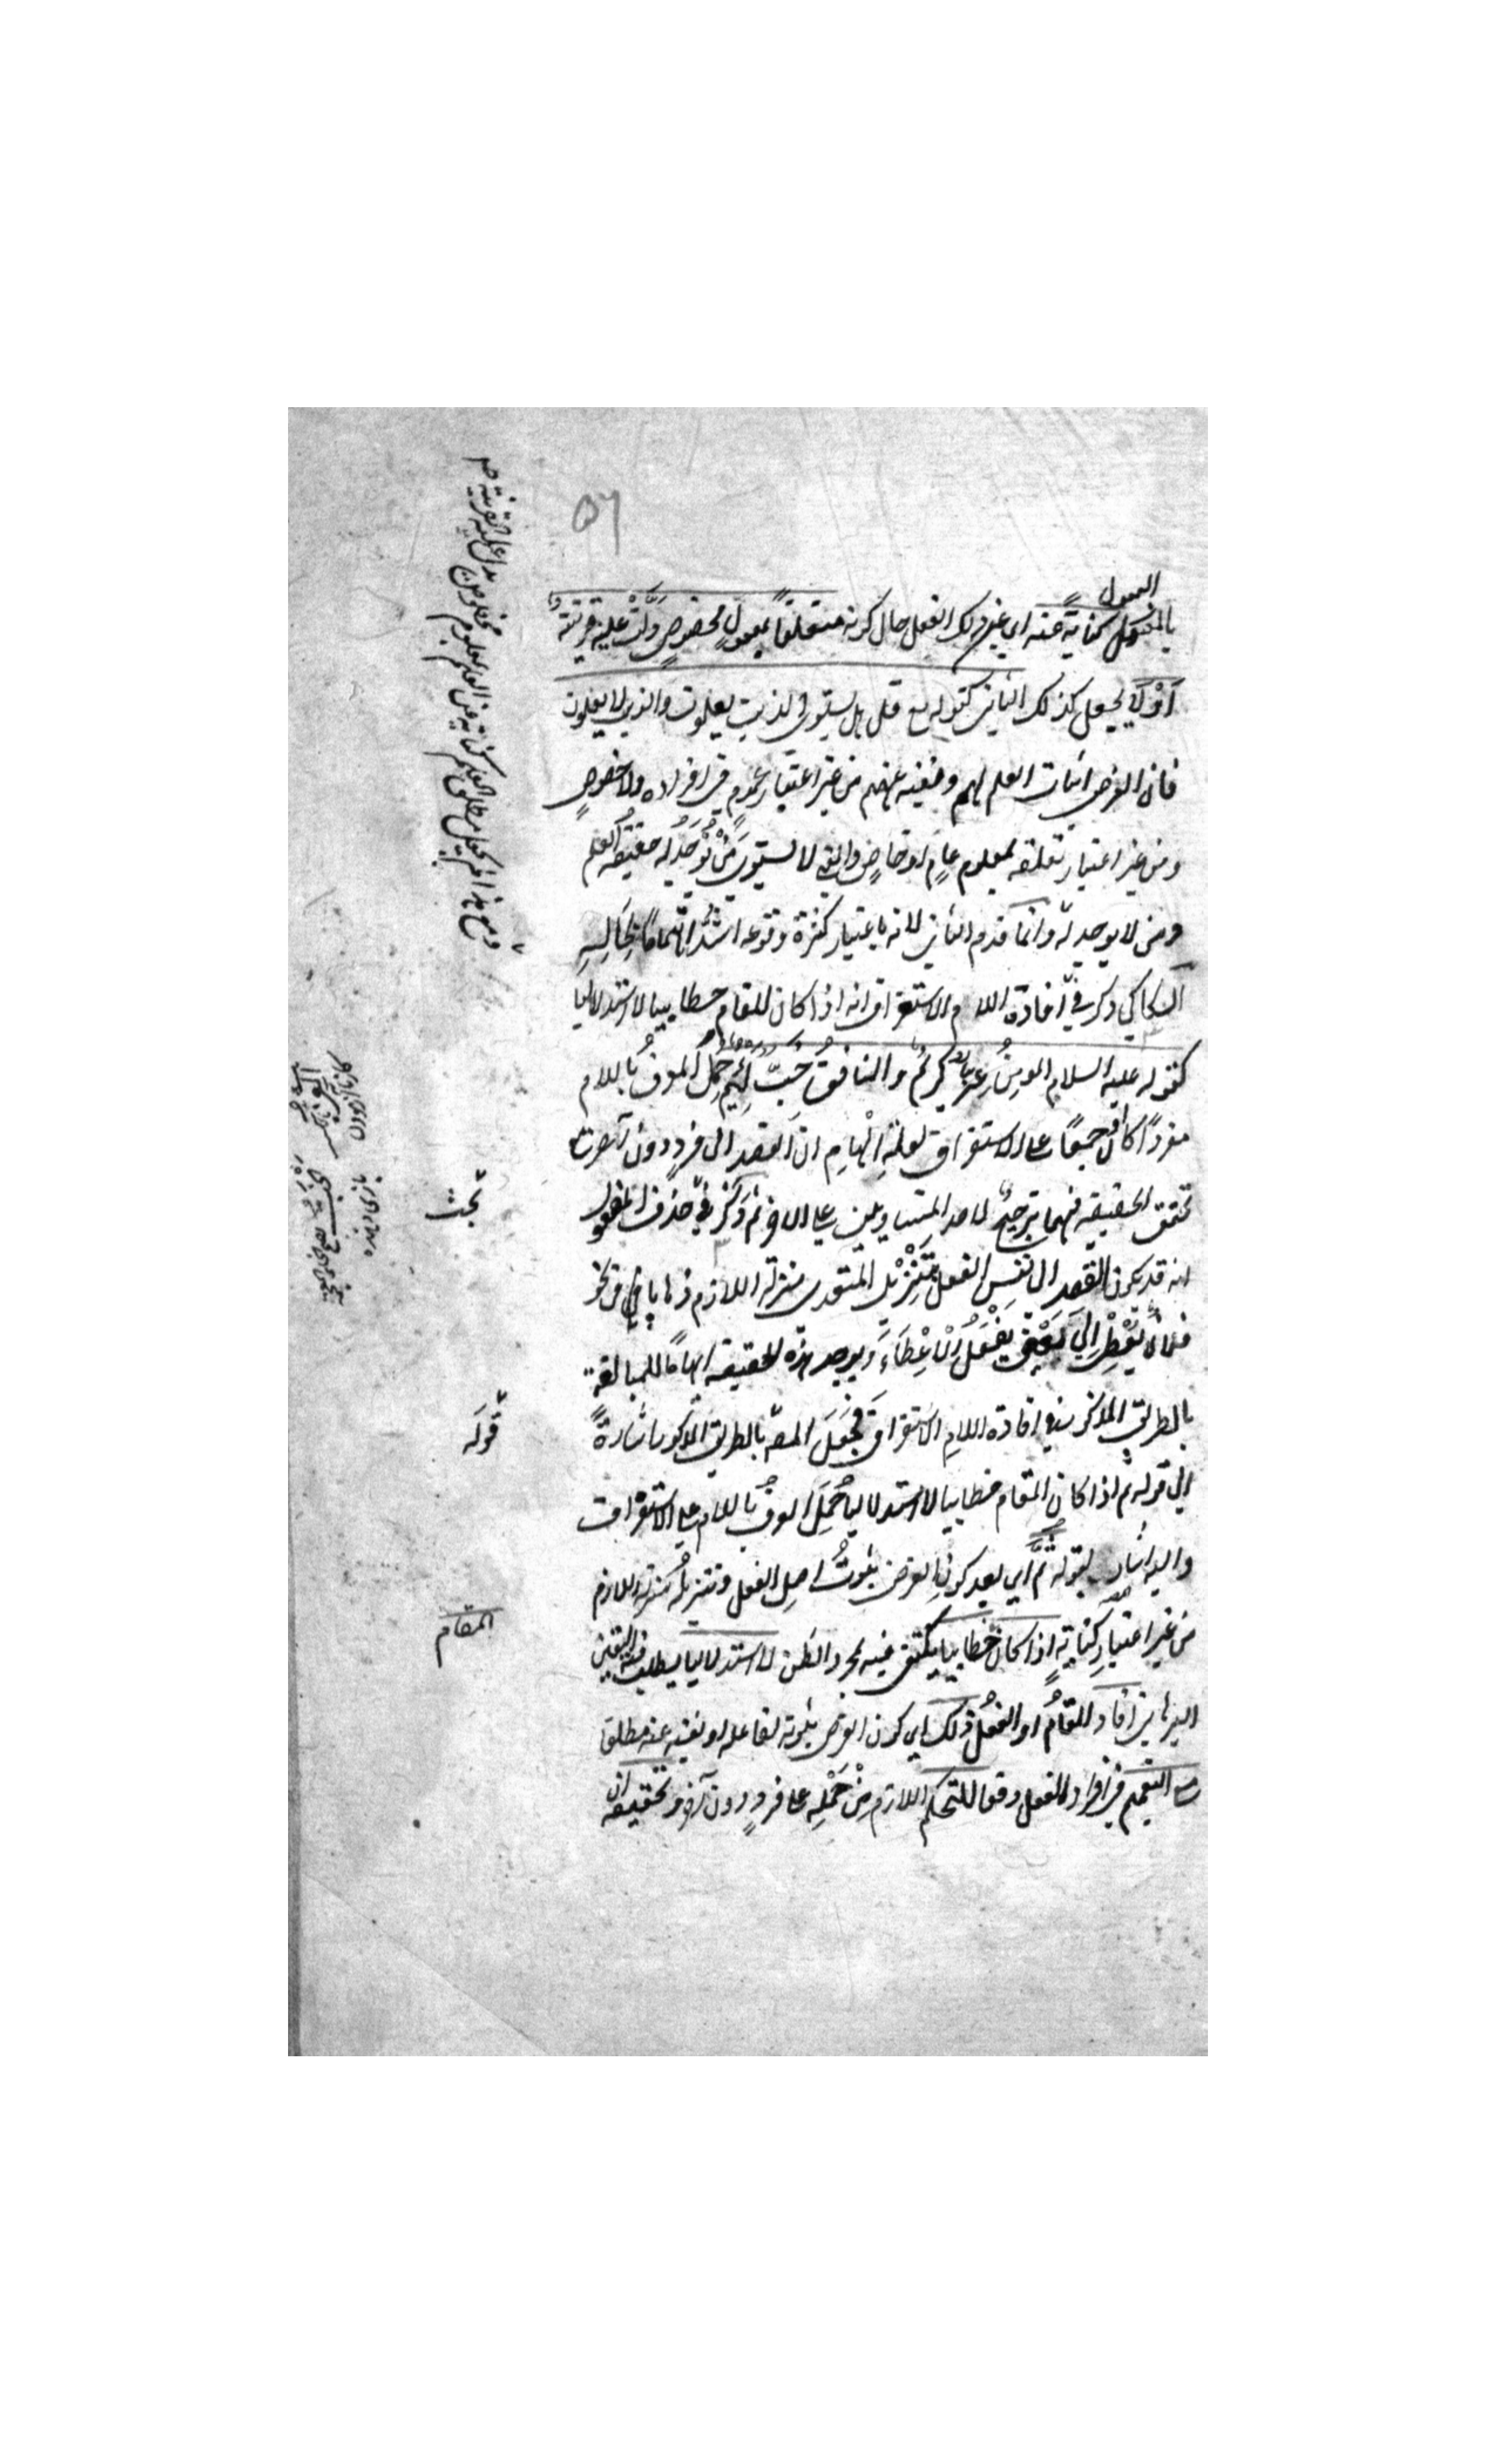 ٥٦
المعمول
بالمفعول كناية عنه اي عن ذلك الفعل حال كونه متعلقا بمفعول مخصوص دلت عليه قرينة
أَوْ لا يجعل كذلك الثاني كقوله تع قل هل يستوي الذين يعلمون والذين لا يعلمون
فان الغرض اثبات العلم لهم ونفيه عنهم من غير اعتبار عموم في افراده ولا خصوصٍ
ومن غير اعتبار تعلقه بمعلوم عامٍ او خاصٍ والمعنى لا يستوي مَنْ تُوْجَدُ له حقيقة العلم
ومن لا يوجد له وانما قدم الثاني لانه باعتبار كثرة وقوعه اشدُّ اهتمامًا بحاله
السكاكي ذكر في افادة اللام الاستغراق انه اذا كان المقام خطابيا لا استدلاليا
كقوله عليه السلام المومنُ غِرٌّ كريمٌ والمنافقُ خِبٌّ لئيمٌ حُمِلَ المعرفُ باللام
مفردًا كان او جمعًا على الاستغراق لعلة ايهامِ ان القصد الى فردٍ دون آخر مع
تحقق الحقيقة فيهما ترجيحٌ لاحد المتساويين على الاخر ثم ذكر في حذف المفعول
انه قد يكون القصد الى نفس الفعل بتنزيل المتعدى منزلة اللازم ذهابا في نحو
فلان يُعْطِي الى مَعْنَى يَفْعَلُ الْاِعْطَاءَ ويوجد هذه الحقيقة ايهامًا للمبالغة
بالطريق المذكور في افادة اللام الاستغراقَ فجَعَلَ المصـ بالطريق المذكور اشارةً
الى قوله ثم اذا كان المقام خطابيا لا استدلاليا حُمِلَ المعرفُ باللام على الاستغراق
واليه اشار بقوله ثُمَّ اي بعد كون الغرض ثبوتُ اصل الفعل وتنزيلُه منزلة اللازم
من غير اعتبار كنايةٍ اذا كان خطابيا يكتفى فيه بمجرد الظن لا استدلاليا يطلب فيه اليقين
البرهاني افاد المقامُ او الفعلُ ذلك اي كون الغرض ثبوته لفاعله او نفيه عنه مطلقا
مع التعميم في افراد الفعل دفعا للتحكم اللازم مِنْ حَمْلِه على فردٍ دون آخر وتحقيقه ان
بحث
قوله
المقام